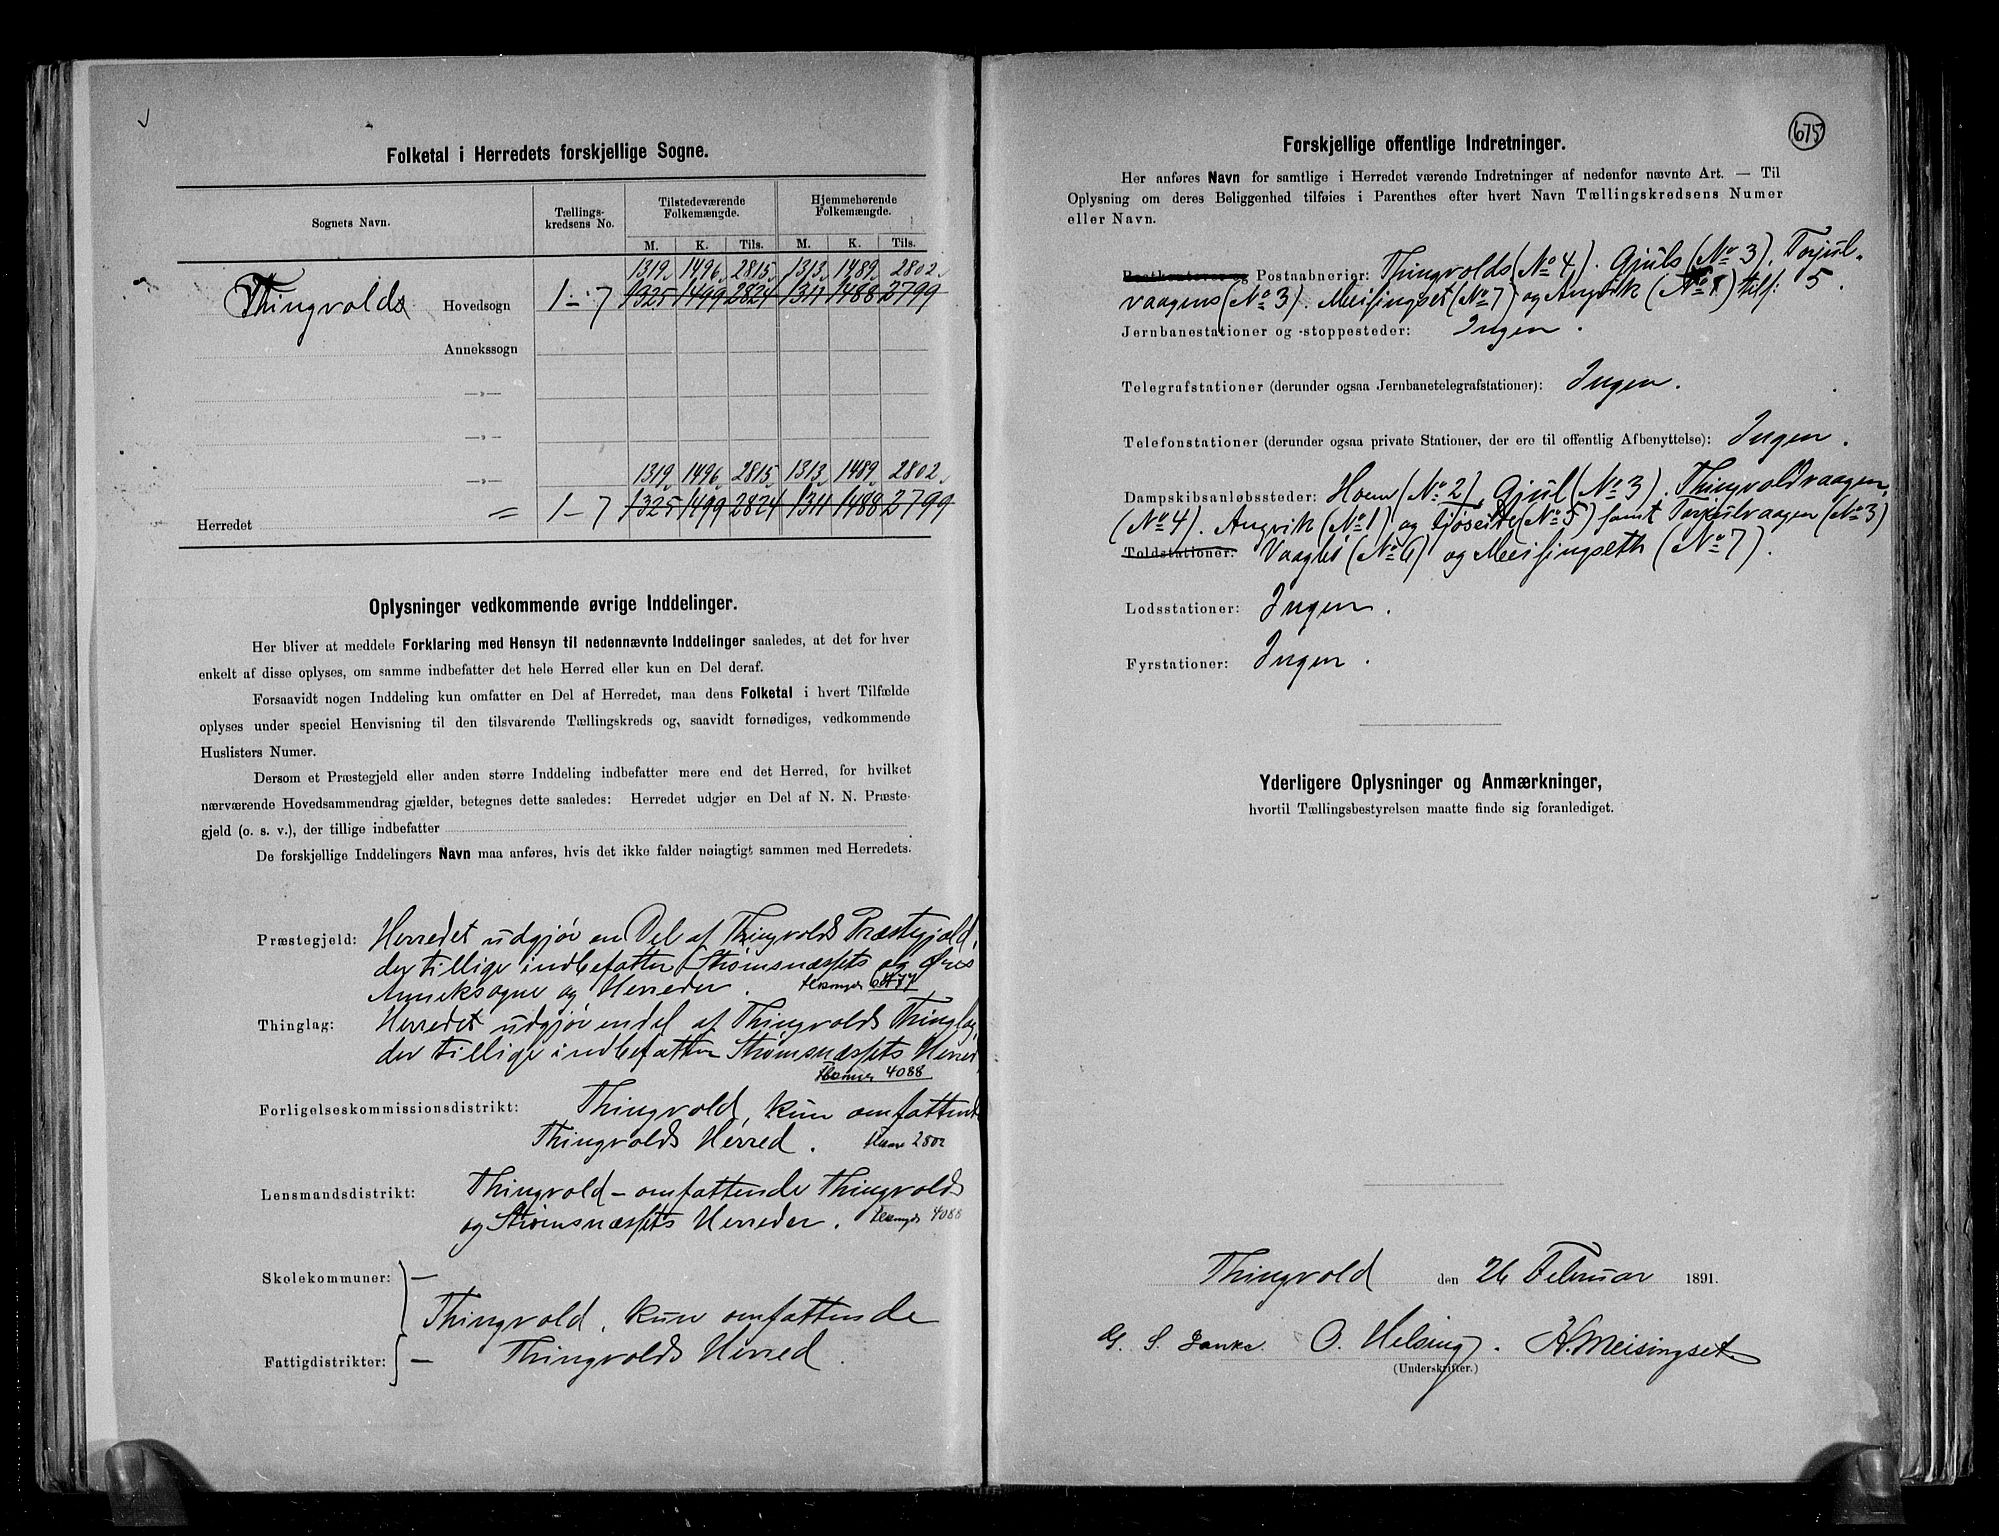 Folketal i Herredets forskjellige Sogne.
Sognets Navn. Tællings-kredsens No. Tilstedeværende Folkemængde. Hjemmehørende Folkemængde.
M. K. Tils. M. K. Tils.
1319 1496 2815 1313 1489 2802
Thingvolds Hovedsogn 1-7 1325 1499 2824 1311 1488 2799
Annekssogn
—„—
—„—
1319 1496 2815 1313 1489 2802
—„—
Herredet = 1-7 1325 1499 2824 1311 1488 2799
Oplysninger vedkommende øvrige Inddelinger.
Her bliver at meddele Forklaring med Hensyn til nedennævnte Inddelinger saaledes, at det for hver
enkelt af disse oplyses, om samme indbefatter det hele Herred eller kun en Del deraf.
Forsaavidt nogen Inddeling kun omfatter en Del af Herredet, maa dens Folketal i hvert Tilfælde
oplyses under speciel Henvisning til den tilsvarende Tællingskreds og, saavidt fornødiges, vedkommende
Huslisters Numer.
Dersom et Præstegjeld eller anden større Inddeling indbefatter mere end det Herred, for hvilket
nærværende Hovedsammendrag gjælder, betegnes dette saaledes: Herredet udgjør en Del af N. N. Præste-
gjeld (o. s. v.), der tillige indbefatter
De forskjellige Inddelingers Navn maa anføres, hvis det ikke falder nøiagtigt sammen med Herredets.
Præstegjeld: Herredet udgjør en Del af Thingvolds Præstegjæld,
der tillige indbefatter Strømsnæssets og Øres
Annexsogne og Herreder.
Thinglag: Herredet udgjør endel af Thingvolds Thinglag,
der tillige indbefatter Strømsnæssets Herred,
4088
Forligelseskommissionsdistrikt: Thingvold, kun omfattende
Thingvolds Herred. 2802
Lensmandsdistrikt: Thingvold – omfattende Thingvolds
og Strømsnæssets Herreder. 4088
Skolekommuner: —
Thingvold, kun omfattende
Fattigdistrikter: — Thingvolds Herred.
675
Forskjellige offentlige Indretninger.
Her anføres Navn for samtlige i Herredet værende Indretninger af nedenfor nævnte Art. — Til
Oplysning om deres Beliggenhed tilføies i Parenthes efter hvert Navn Tællingskredsens Numer
eller Navn.
Postkontorer og Postaabnerier: Thingvolds (No 4). Gjuls (No 3). Torjul-
vaagens (No 3). Meisingset (No 7) og Angvik (No 1) tils: 5.
Jernbanestationer og -stoppesteder: Ingen.
Telegrafstationer (derunder ogsaa Jernbanetelegrafstationer): Ingen.
Telefonstationer (derunder ogsaa private Stationer, der ere til offentlig Afbenyttelse): Ingen.
Dampskibsanløbssteder: Hoem (No 2), Gjul (No 3). Thingvoldvaagen,
(No 4). Angvik (No 1) og (No 5) samt Torjulvaagen (No 3)
Toldstationer: Vaagbø (No 6) og Meisingseth (No 7).
Lodsstationer: Ingen.
Fyrstationer: Ingen.
Yderligere Oplysninger og Anmærkninger,
hvortil Tællingsbestyrelsen maatte finde sig foranlediget.
Thingvold den 26 Februar 1891.
G. S. O. Helsing. H. Meisingset.
(Underskrifter.)